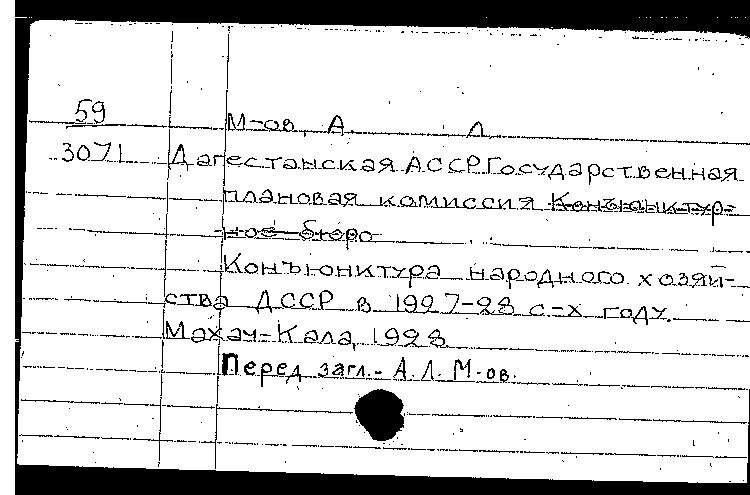 59
М-ов, А. Л.
3071 Дагестанская АССР. Государственная
плановая комиссия Конъюнктур-
ное бюро
Конъюнктура народного хозяй-
ства ДССР в 1927-28 с-х году.
Махач-Кала, 1928
Перед загл.- А.Л. М-ов.